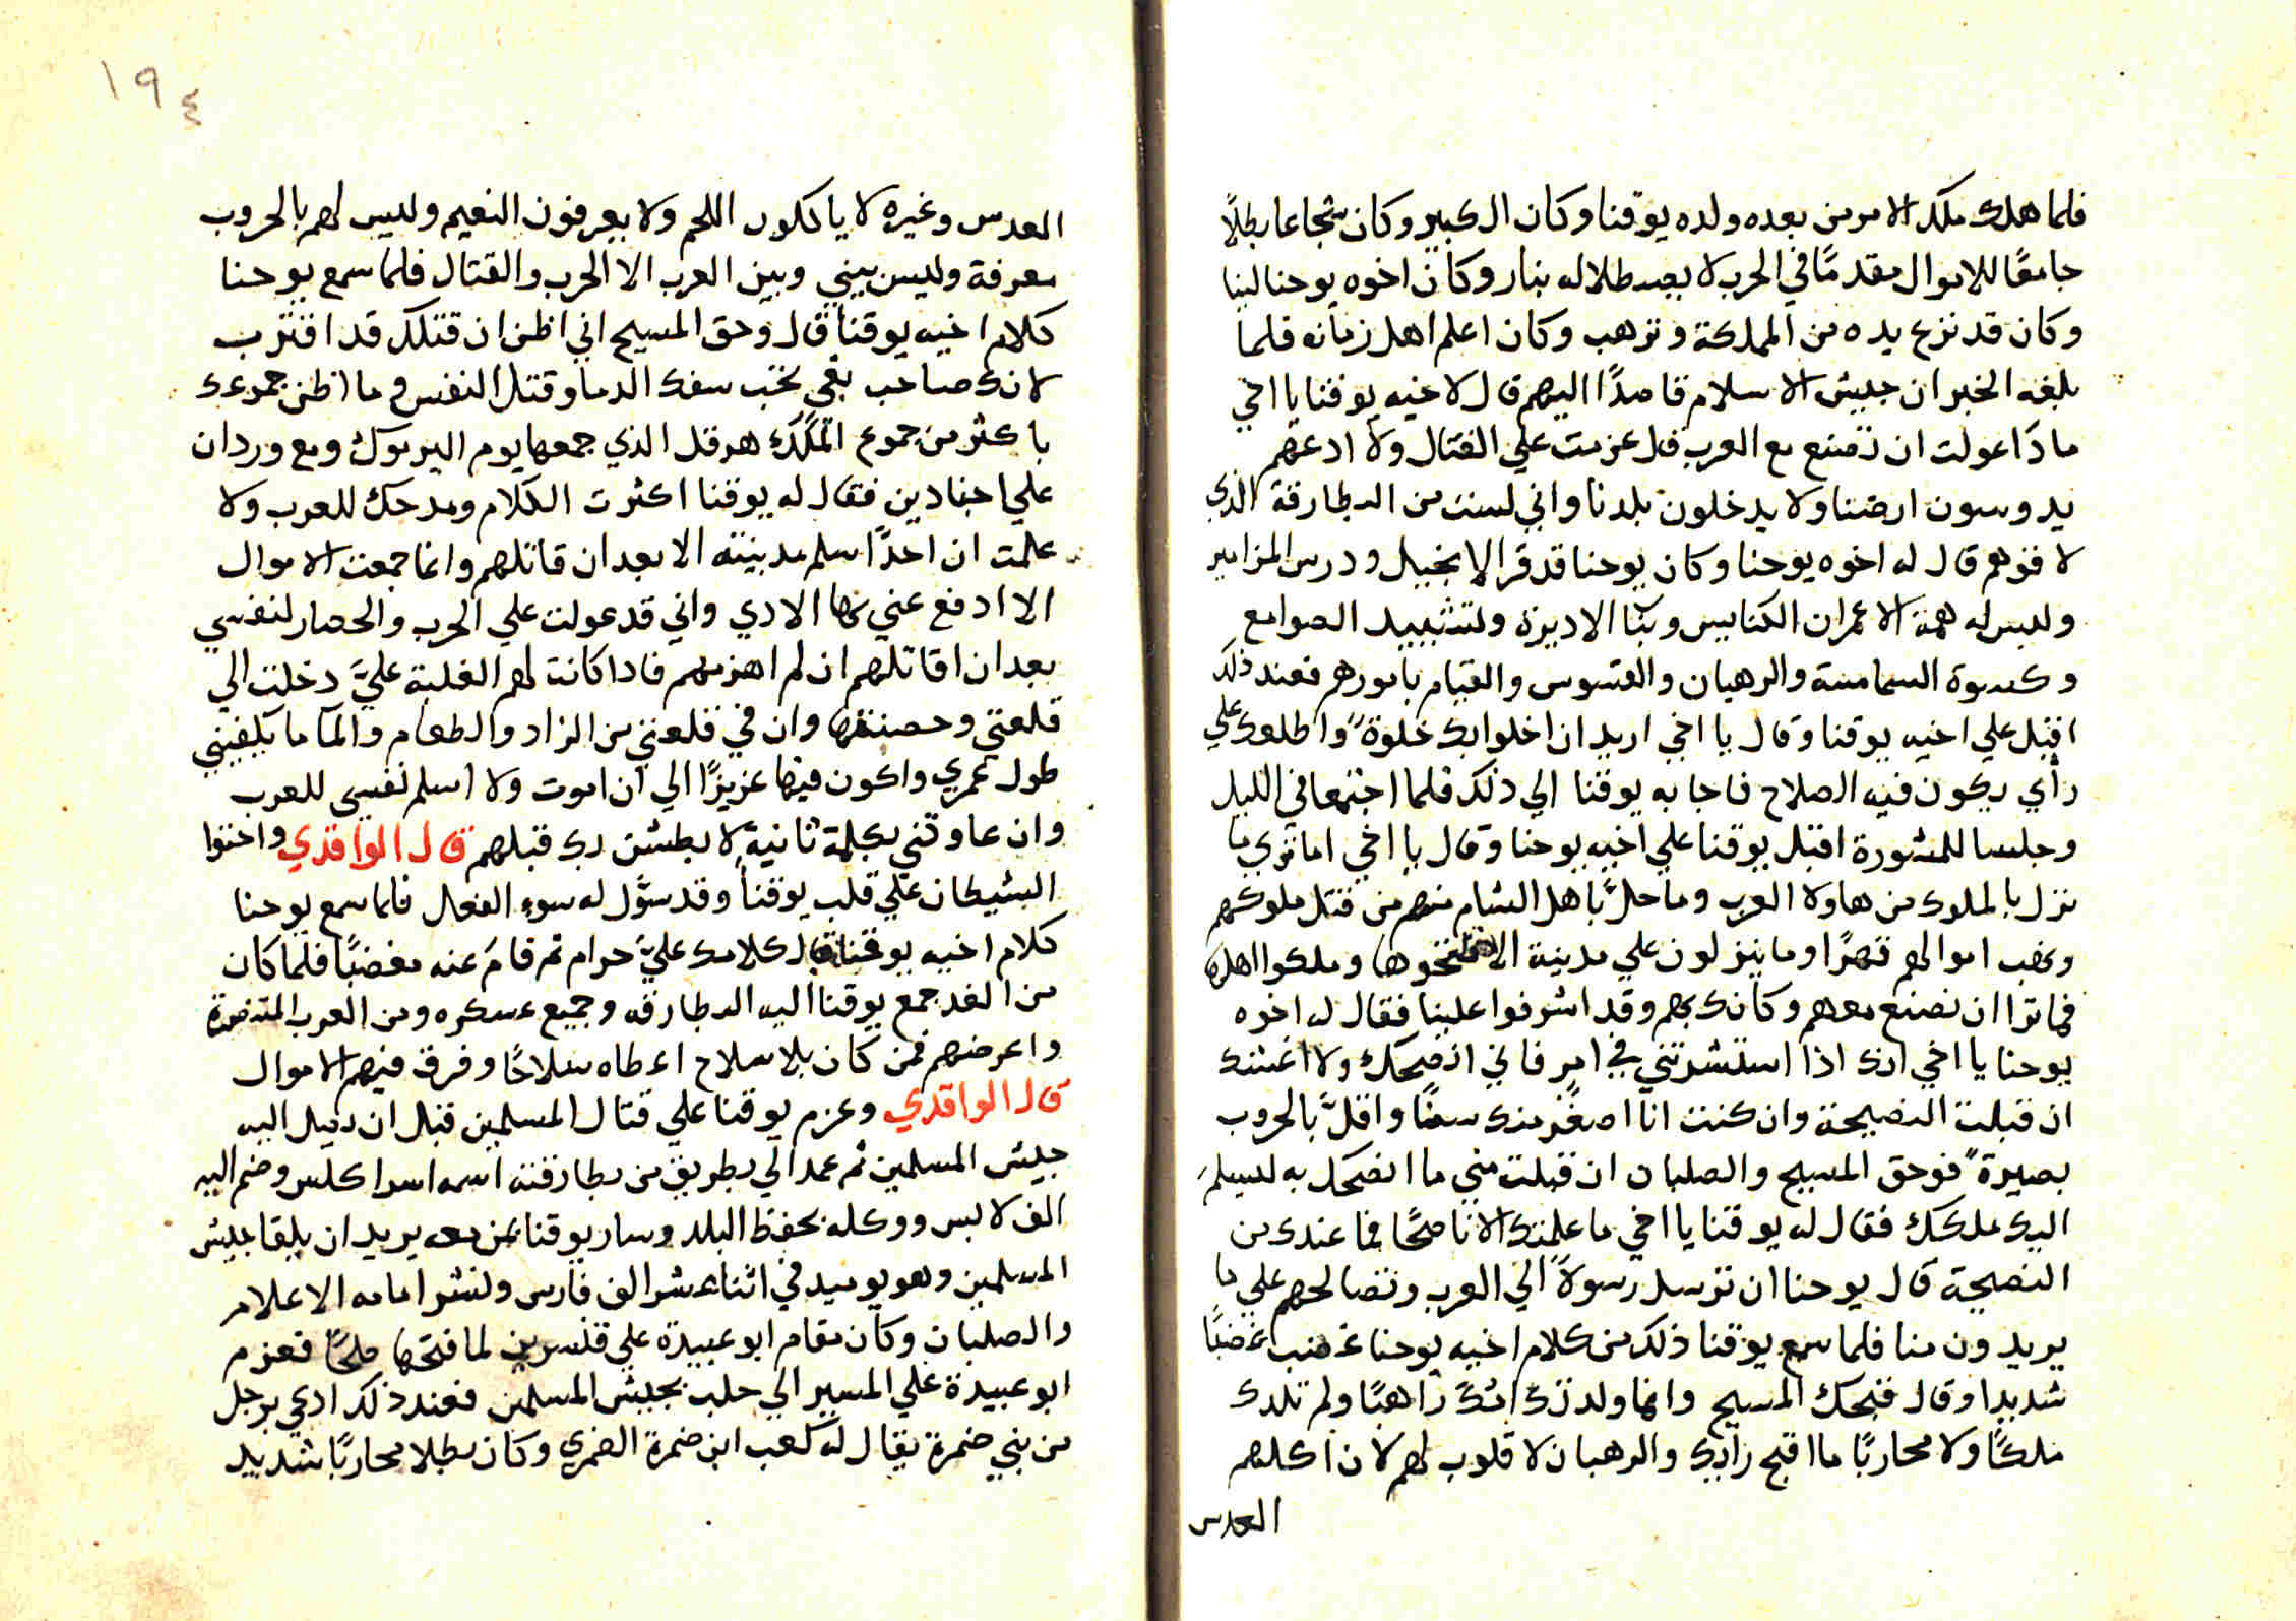 فلما هلك ملك الامر من بعده ولده يوقنا وكان الكبير وكان شجاعا بطلًا
جامعًا للاموال مقدمًا في الحرب لا يصطلا له بنار وكان اخوه يوحنا لينا
وكان قد نزع يده من المملكة وترهب وكان اعلم اهل زمانه فلما
بلغه الخبر ان جيش الاسلام قاصدًا اليهم قال لاخيه يوقنا يا اخي
ماذا عولت ان تصنع مع العرب قال عزمت علي القتال ولا ادعهم
يدوسون ارضنا ولا يدخلون بلدنا واني لست من البطارقة الذي
لا قوهم قال له اخوه يوحنا وكان يوحنا قد قرا الانجيل ودرس المزامير
وليس له همة الا عمران الكنايس وبنا الاديرة وتشييد الصوامع
وكسوة الشمامسة والرهبان والقسوس والقيام بامورهم فعند ذلك
اقبل علي اخيه يوقنا وقال يا اخي اريد ان اخلوا بك خلوةً واطلعك علي
رأي يكون فيه الصلاح فاجابه يوقنا الي ذلك فلما اجتمعا في الليل
وجلسا للمشورة اقبل يوقنا علي اخيه يوحنا وقال يا اخي اما تري ما
نزل بالملوك من هاولا العرب وما حلَّ باهل الشام منهم من قتل ملوكهم
ونهب اموالهم قهرًا وما ينزلون علي مدينة الا فتحوها وملكوا اهلها
فما ترا ان نصنع معهم وكانك بهم وقد اشرفوا علينا فقال له اخوه
يوحنا يا اخي انك اذا استشرتني في امر فاني انصحك ولا اغشك
ان قبلت النصيحة وان كنت انا اصغر منك سنًا واقلَّ بالحروب
بصيرةً فوحق المسيح والصلبان ان قبلت مني ما انصحك به ليسلم
اليك ملكك فقال له يوقنا يا اخي ما علمتك الا ناصحًا فما عندك من
النصيحة قال يوحنا ان ترسل رسولًا الي العرب وتصالحهم علي ما
يريدون منا فلما سمع يوقنا ذلك من كلام اخيه يوحنا غضب غضبًا
شديدا وقال قبحك المسيح وانما ولدتك امك راهبًا ولم تلدك
ملكًا ولا محاربًا ما اقبح رايك والرهبان لا قلوب لهم لان اكلهم
العدس
١٩٤
العدس وغيره لا ياكلون اللحم ولا يعرفون النعيم وليس لهم بالحروب
معرفة وليس بيني وبين العرب الا الحرب والقتال فلما سمع يوحنا
كلام اخيه يوقنا قال وحق المسيح اني اظن ان قتلك قد اقترب
لانك صاحب بغي تحب سفك الدما وقتل النفس وما اظن جموعك
باكثر من جموع الملك هرقل الذي جمعها يوم اليرموك ومع وردان
علي اجنادين فقال له يوقنا اكثرت الكلام ومدحك للعرب ولا
علمت ان احدًا سلم مدينته الا بعد ان قاتلهم وانما جمعت الاموال
الا ادفع عني بها الادي واني قد عولت علي الحرب والحصار لنفسي
بعد ان اقاتلهم ان لم اهزمهم فاذا كانت لهم الغلبة عليَّ دخلت الي
قلعتي وحصنتها وان في قلعتي من الزاد والطعام والمآ ما يكفيني
طول عمري واكون فيها عزيزًا الي ان اموت ولا اسلم نفسي للعرب
وان عاودتني بكلمة ثانية لا بطشن بك قبلهم قال الواقدي واحتوا
الشيطان علي قلب يوقنا وقد سوَّل له سوء الفعال فلما سمع يوحنا
كلام اخيه يوقنا قال كلامك عليَّ حرام ثم قام عنه مغضبًا فلما كان
من الغد جمع يوقنا اليه البطارقه وجميع عسكره ومن العرب المتنصرة
واعرضهم فمن كان بلا سلاح اعطاه سلاحًا وفرق فيهم الاموال
قال الواقدي وعزم يوقنا علي قتال المسلمين قبل ان يصل اليه
جيش المسلمين ثم عمد الي بطريق من بطارقته اسمه اسراكلس وضم اليه
الف لابس ووكله بحفظ البلد وسار يوقنا بمن معه يريد ان يلقا جيش
المسلمين وهو يوميد في اثنا عشر الف فارس ونشر امامه الاعلام
والصلبان وكان مقام ابو عبيدة علي قنسرين لما فتحها صلحًا فعزم
ابو عبيدة علي المسير الي حلب بجيش المسلمين فعند ذلك ادعي برجل
من بني ضمرة يقال له كعب ابن ضمرة الضمري وكان بطلا محاربًا شديد